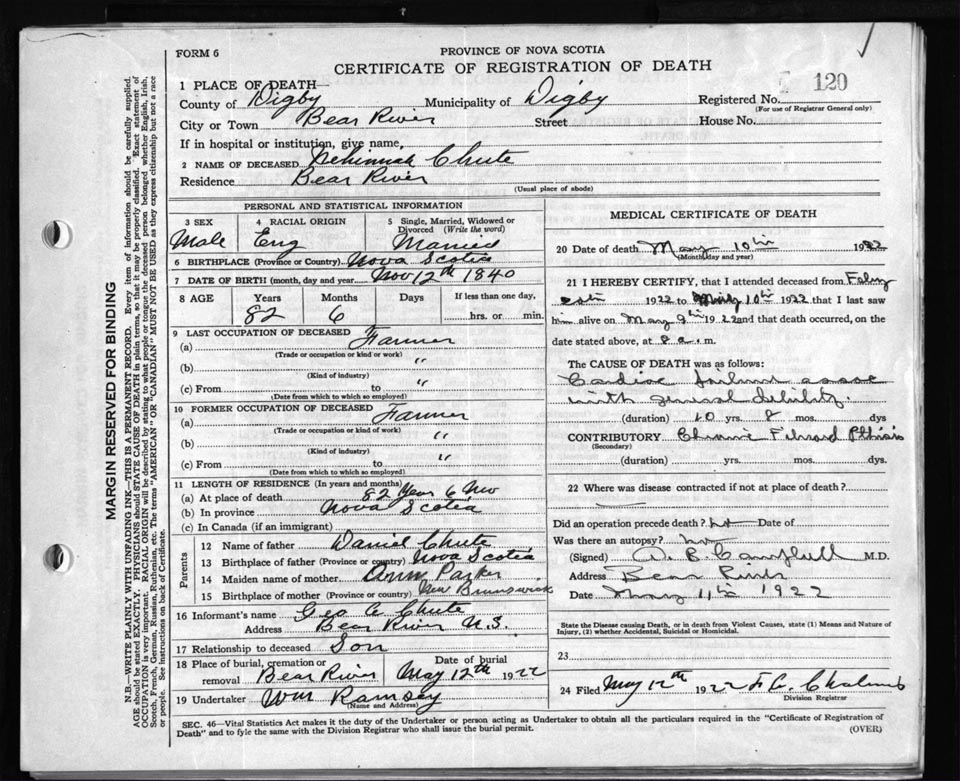 FORM 6
PROVINCE OF NOVA SCOTIA
CERTIFICATE OF REGISTRATION OF DEATH
120
1 PLACE OF DEATH—
County of Digby Municipality of Digby Registered No.
(For use of Registrar General only)
City or Town Bear River Street House No.
If in hospital or institution, give name,
2 NAME OF DECEASED Nehimiah Chute
Residence Bear River
(Usual place of abode)
PERSONAL AND STATISTICAL INFORMATION
3 SEX 4 RACIAL ORIGIN 5 Single, Married, Widowed or Divorced (Write the word)
Male Eng Married
6 BIRTHPLACE (Province or Country) Nova Scotia
7 DATE OF BIRTH (month, day and year) Nov 12th 1840
8 AGE Years Months Days If less than one day,
82 6 hrs. or min.
9 LAST OCCUPATION OF DECEASED
(a) Farmer
(Trade or occupation or kind or work)
(b) "
(Kind of industry)
(c) From to "
(Date from which to which so employed)
10 FORMER OCCUPATION OF DECEASED
(a) Farmer
(Trade or occupation or kind or work)
(b) "
(Kind of industry)
(c) From to "
(Date from which to which so employed)
11 LENGTH OF RESIDENCE (In years and months)
(a) At place of death 82 Year 6 Mo
(b) In province Nova Scotia
(c) In Canada (if an immigrant)
Parents
12 Name of father Daniel Chute
13 Birthplace of father (Province or country) Nova Scotia
14 Maiden name of mother Ann Parker
15 Birthplace of mother (Province or country) New Brunswick
16 Informant's name Geo C Chute
Address Bear River N.S.
17 Relationship to deceased Son
18 Place of burial, cremation or removal Bear River Date of burial May 12th 1922
19 Undertaker Wm Ramsey
(Name and Address)
MEDICAL CERTIFICATE OF DEATH
20 Date of death May 10th 1922
(Month, day and year)
21 I HEREBY CERTIFY, that I attended deceased from Febry
20th 1922 to May 10th 1922 that I last saw
him alive on May 9th 1922 and that death occurred, on the
date stated above, at 8 a. m.
The CAUSE OF DEATH was as follows:
Cardiac failure assoc
with general debility.
(duration) 10 yrs. 8 mos. dys
CONTRIBUTORY Chronic Fibroid Pthisis
(Secondary)
(duration) yrs. mos. dys.
22 Where was disease contracted if not at place of death?
Did an operation precede death? No Date of
Was there an autopsy? No
(Signed) A. B. Campbell M.D.
Address Bear River
Date May 11th 1922
State the Disease causing Death, or in death from Violent Causes, state (1) Means and Nature of
Injury, (2) whether Accidental, Suicidal or Homicidal.
23
24 Filed May 12th 1922
Division Registrar
SEC. 46—Vital Statistics Act makes it the duty of the Undertaker or person acting as Undertaker to obtain all the particulars required in the "Certificate of Registration of
Death" and to fyle the same with the Division Registrar who shall issue the burial permit. (OVER)
MARGIN RESERVED FOR BINDING
N.B.—WRITE PLAINLY WITH UNFADING INK—THIS IS A PERMANENT RECORD. Every item of information should be carefully supplied.
AGE should be stated EXACTLY. PHYSICIANS should STATE CAUSE OF DEATH in plain terms, so that it may be properly classified. Exact statement of
OCCUPATION is very important. RACIAL ORIGIN will be described by stating to what people or tongue the deceased person belonged whether English, Irish,
Scotch, French, German, Russian, Ruthenian, etc. The terms "AMERICAN" OR "CANADIAN" MUST NOT BE USED as they express citizenship but not a race
or people. See instructions on back of Certificate.